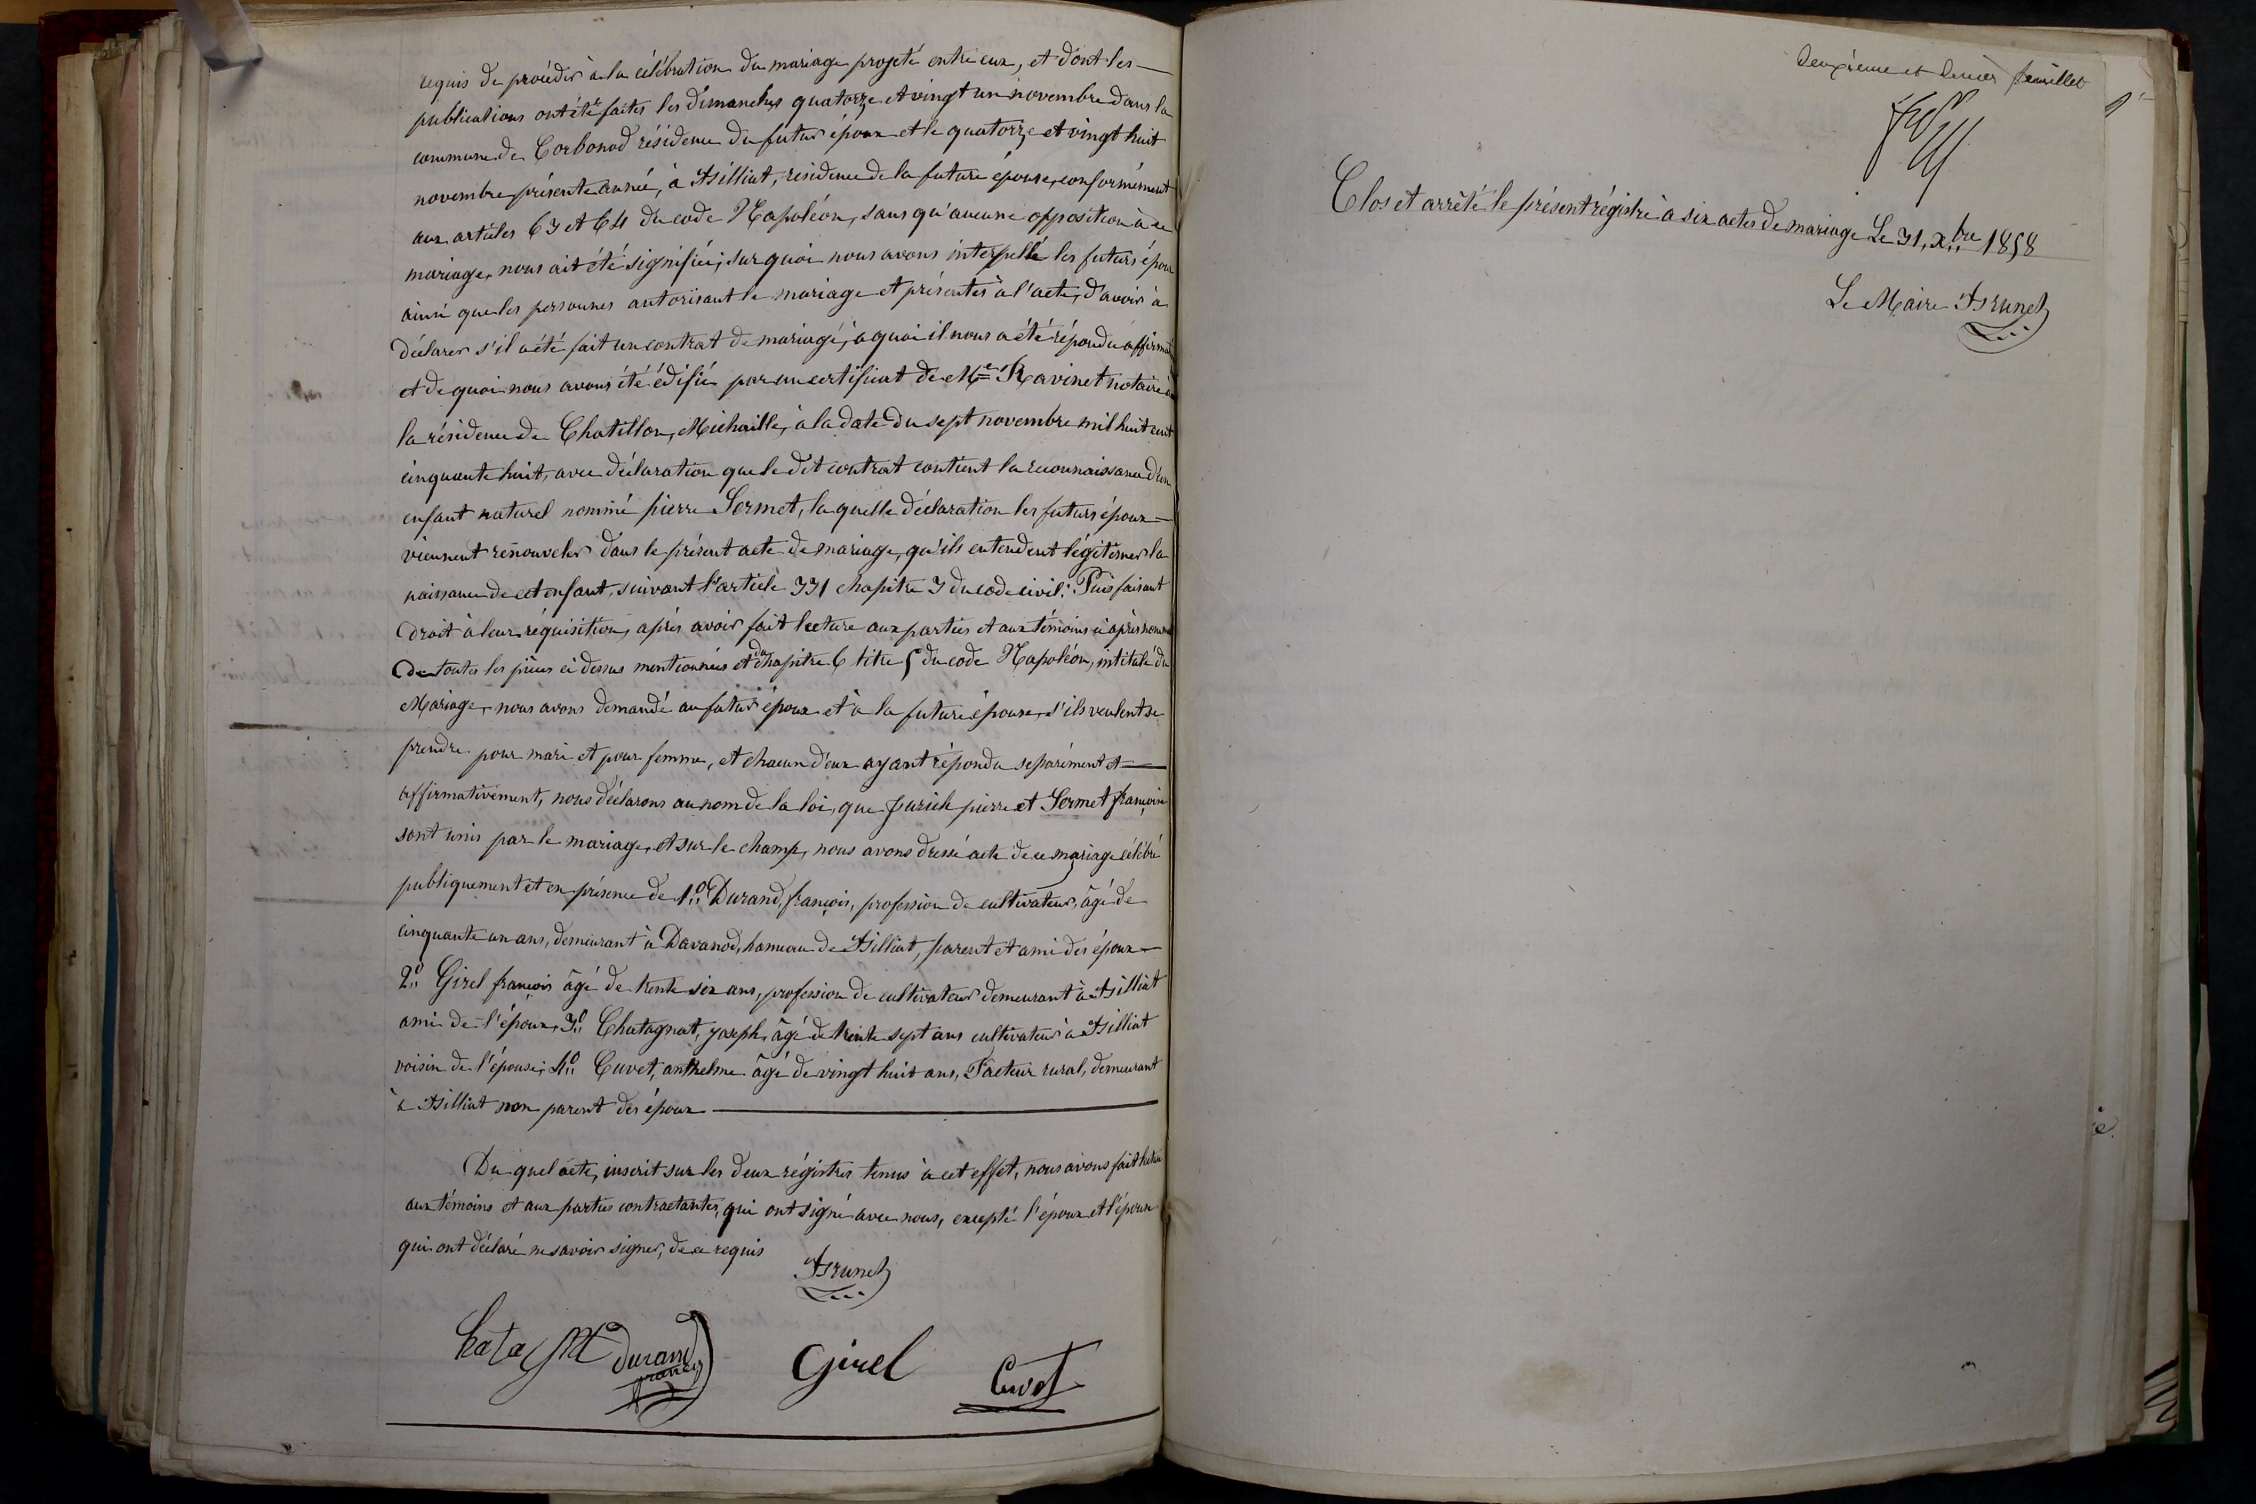 requis de procéder à la célébration du mariage projeté entre eux, et dont les
publications ont été faites les dimanches quatorze et vingt un novembre dans la
commune de Corbonod résidence du futur époux et le quatorze et vingt huit
novembre présente année, à Billiat, résidence de la future épouse, conformément
aux articles 63 et 64 du code Napoléon, sans qu'aucune opposition à ce
mariage, nous ait été signifiée; sur quoi nous avons interpellé les futurs époux
ainsi que les personnes autorisant le mariage et présentes à l'acte, d'avoir à
déclarer s'il a été fait un contrat de mariage, à quoi il nous a été répondu affirmat
et de quoi nous avons été édifié par un certificat de Me Ravinet notaire à
la résidence de Chatillon, Michaille, à la date du sept novembre mil huit cent
cinquante huit, avec déclaration que le dit contrat contient la reconnaissance d'un
enfant naturel nommé pierre Sermet, la quelle déclaration les futurs époux
viennent rénouveler dans le présent acte de mariage, qu'ils entendent légitimer la
naissance de cet enfant, suivant l'article 331 chapitre 3 du code civil; Puis faisant
droit à leur réquisition, après avoir fait lecture aux parties et aux témoins ci après nommés
De toutes les pièces ci dessus mentionnées et du chapitre 6 titre 5 du code Napoléon, intitulé du
Mariage, nous avons demandé au futur époux et à la future épouse, s'ils veulent se
prendre pour mari et pour femme, et chacun d'eux ayant répondu séparément et
affirmativement, nous déclarons au nom de la loi, que pierre et Sermet françoise
sont unis par le mariage, et sur le champ, nous avons dressé acte de ce mariage célébré
publiquement et en présence de 1o Durand, françois, profession de cultivateur, âgé de
cinquante un ans, demeurant à Davanod, hameau de Billiat, parent et ami des époux
2o Girel françois âgé de trente six ans, profession de cultivateur demeurant à Billiat
ami de l'époux, 3o Chatagnat, joseph, âgé de trente sept ans cultivateur à Billiat
voisin de l'épouse; 4o Cuvet, anthelme âgé de vingt huit ans, Facteur rural, demeurant
à Billiat non parent des époux
Du quel acte, inscrit sur les deux régistres tenus à cet effet, nous avons fait lecture
aux témoins et aux parties contractantes, qui ont signé avec nous, excepté l'époux et l'épouse
qui ont déclaré ne savoir signer, de ce requis
Brunet
Durand
françois
Girel
Cuvet
Deuxième et dernier feuillet
Clos et arrêté le présent régistre à six actes de mariage Le 31, Xbre 1858
Le Maire Brunet